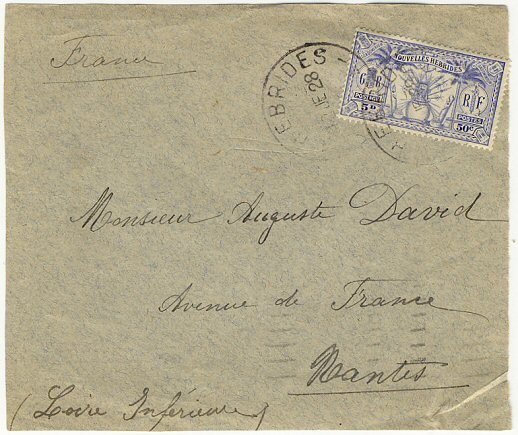 France
HEBRIDES
JE 28
NOUVELLES HEBRIDES
R F
POSTES
5D
50C
Monsieur Auguste David
Avenue de France
Nantes
(Loire Inférieure)